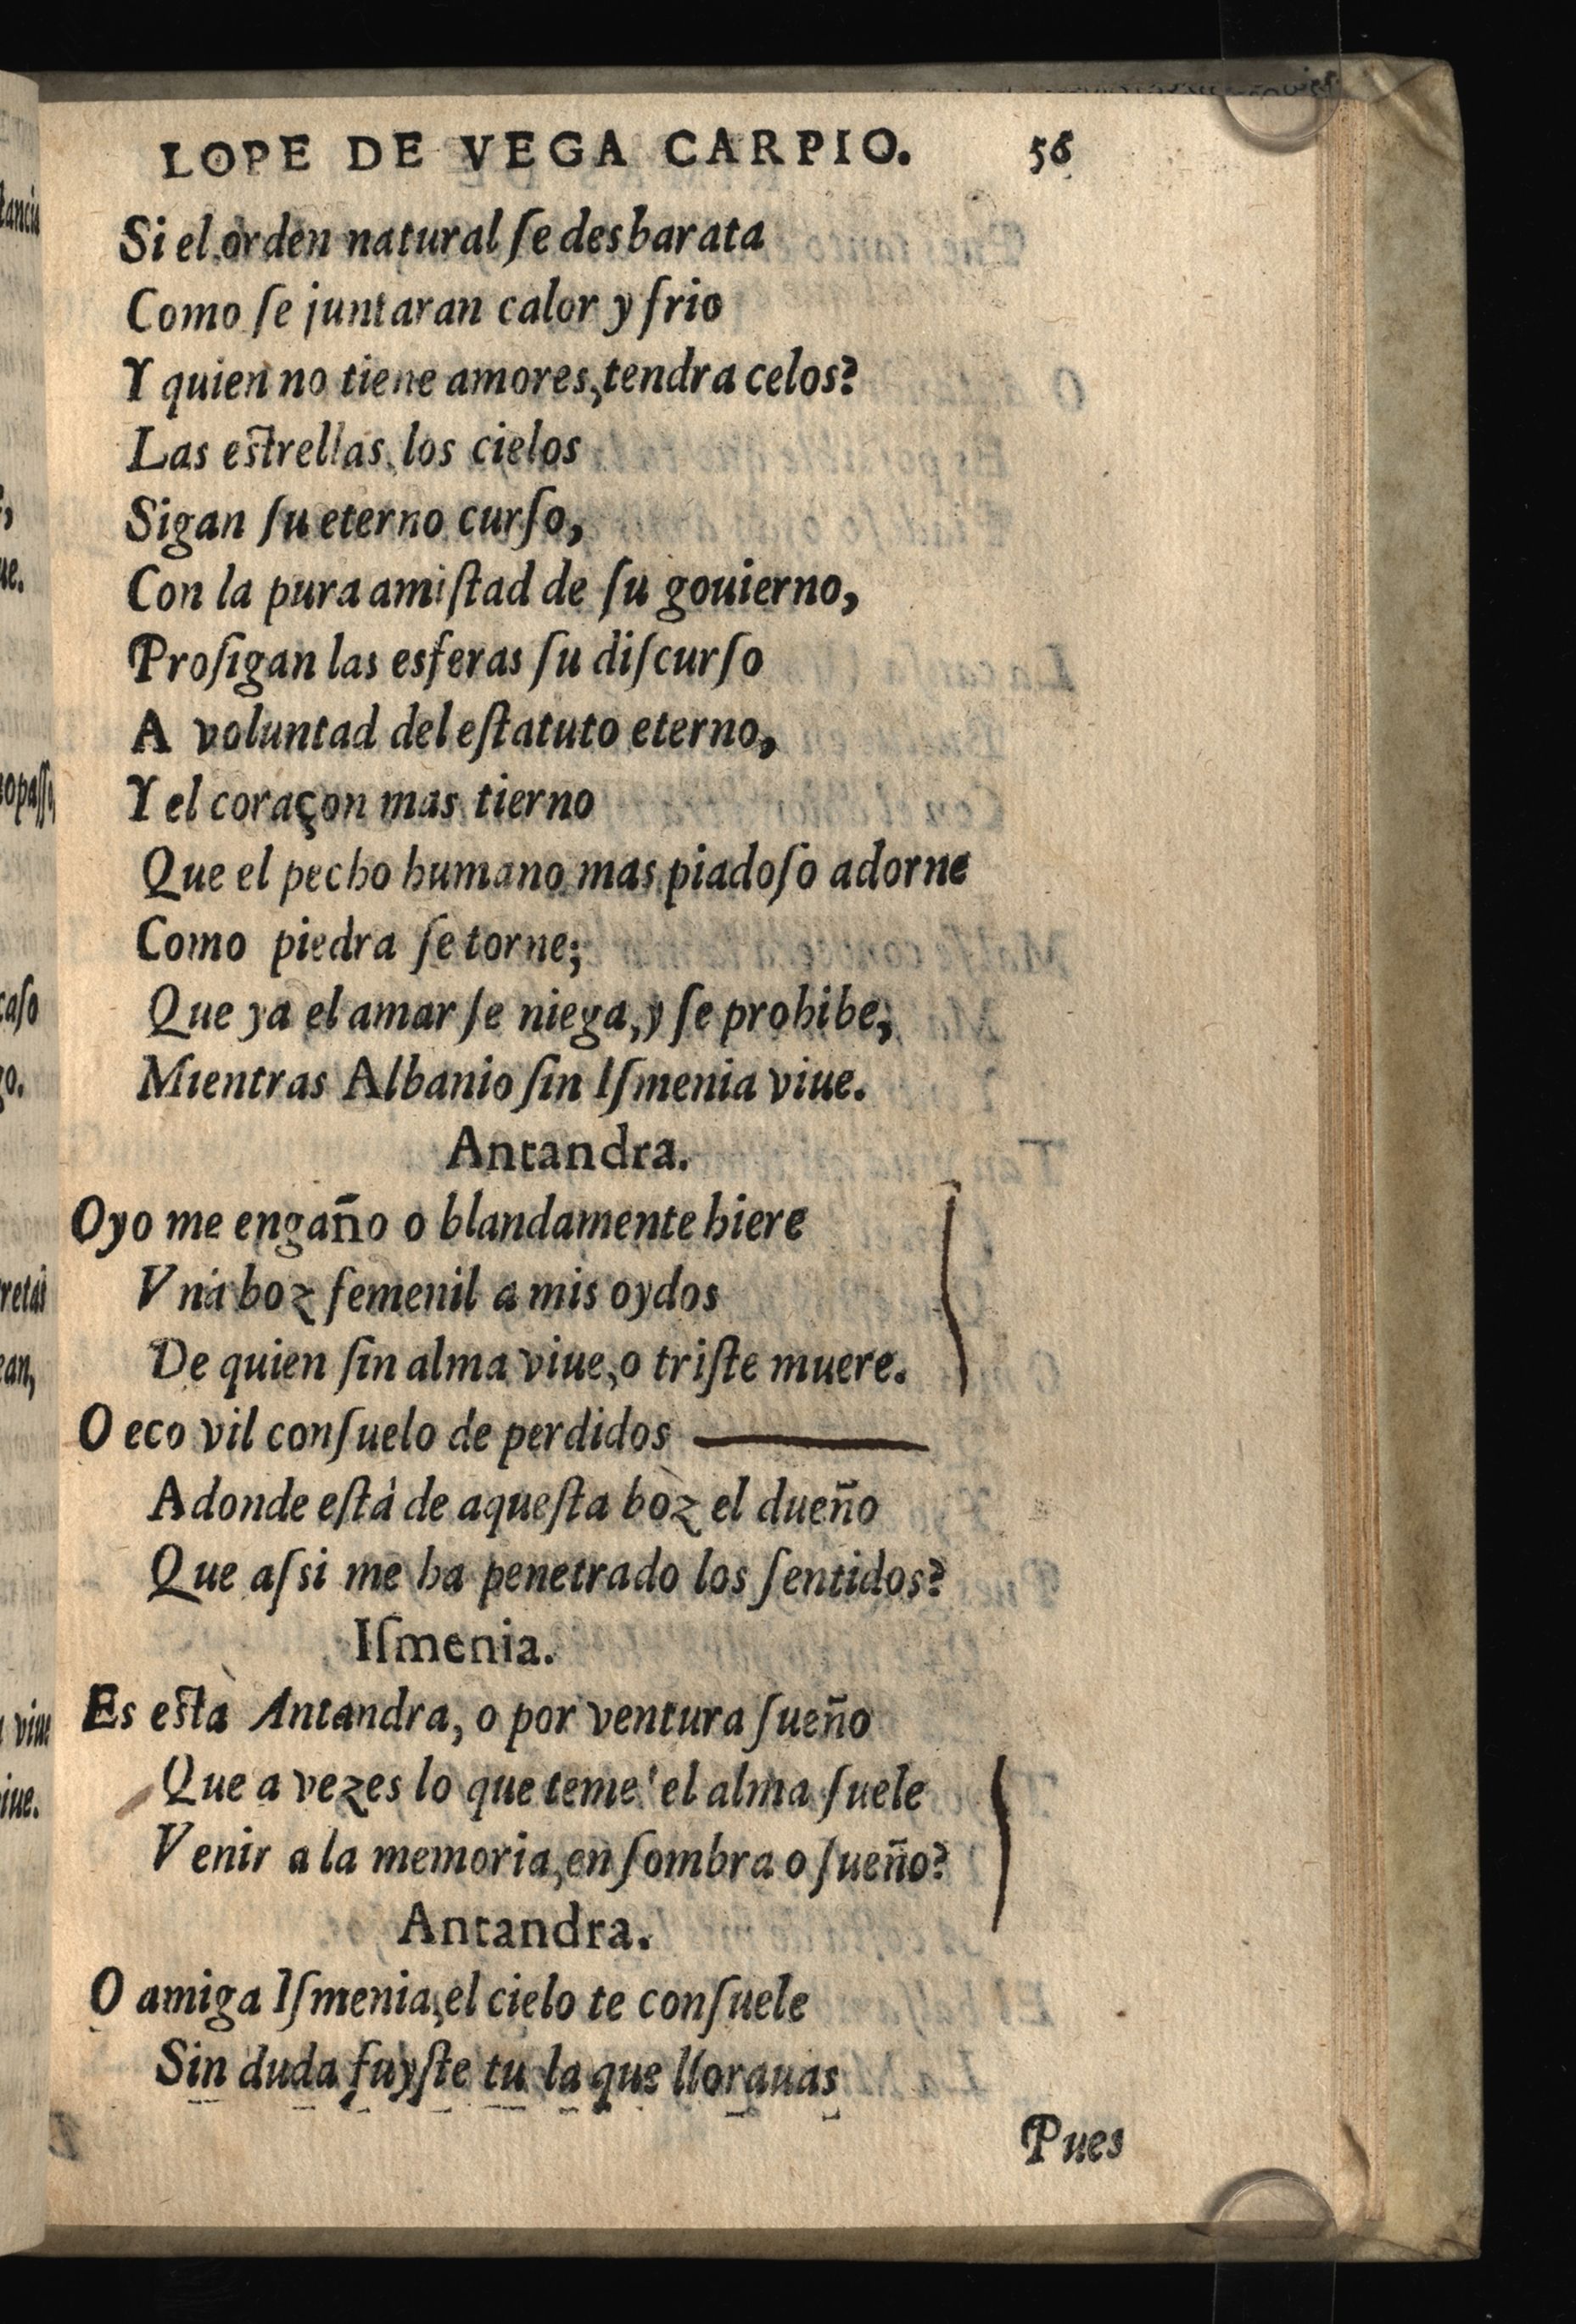 LOPE DE VEGA CARPIO. 56
Si el orden natural ſe desbarata
Como ſe juntaran calor y frio
Y quien no tiene amores, tendra celos?
Las eſtrellas, los cielos
Sigan ſu eterno curſo,
Con la pura amiſtad de ſu gouierno,
Proſigan las esferas ſu diſcurſo
A voluntad del eſtatuto eterno,
Y el coraçon mas tierno
Que el pecho humano mas piadoſo adorne
Como piedra ſe torne;
Que ya el amar ſe niega, y ſe prohibe,
Mientras Albanio ſin Iſmenia viue.
Antandra.
Oyo me engaño o blandamente hiere
Vna boz femenil a mis oydos
De quien ſin alma viue, o triſte muere.
O eco vil conſuelo de perdidos
Adonde eſtà de aqueſta bòz el dueño
Que aſsi me ha penetrado los ſentidos?
Iſmenia.
Es eſtà Antandra, o por ventura ſueño
Que a vezes lo que teme el alma ſuele
Venir a la memoria, en ſombra o ſueño?
Antandra.
O amiga Iſmenia, el cielo te conſuele
Sin duda fuyſte tu la que llorauas
Pues